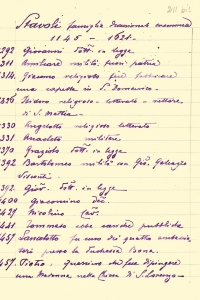 Stavoli famiglia Decurional cremonese
1145 - 1621.
1292. Giovanni Dott. in legge
1311 Annibale militò fuori patria
1314. Giacomo religioso fece fabbricare
una capella in S. Domenico.
Isidoro religioso - letterato - rettore
di S. Mattia.
1330 Angelotto religioso letterato
1331 Anacleto militare
1370 Graziolo Dott. in legge
1392 Bartolomeo militò con Gio. Galeazzo
Visconti.
1392. Giov. Dott. in legge
1400 Giacomino dec.
1427 Nicolino Cav.
1441 Tommaso ebbe cariche pubbliche
1457. Lancelotto fu uno dei quattro ambascia
tori presso la Duchessa Bona.
1457. Pietro, Guerrino che fece dipingere
una Madonna nella Chiesa di S. Lorenzo.